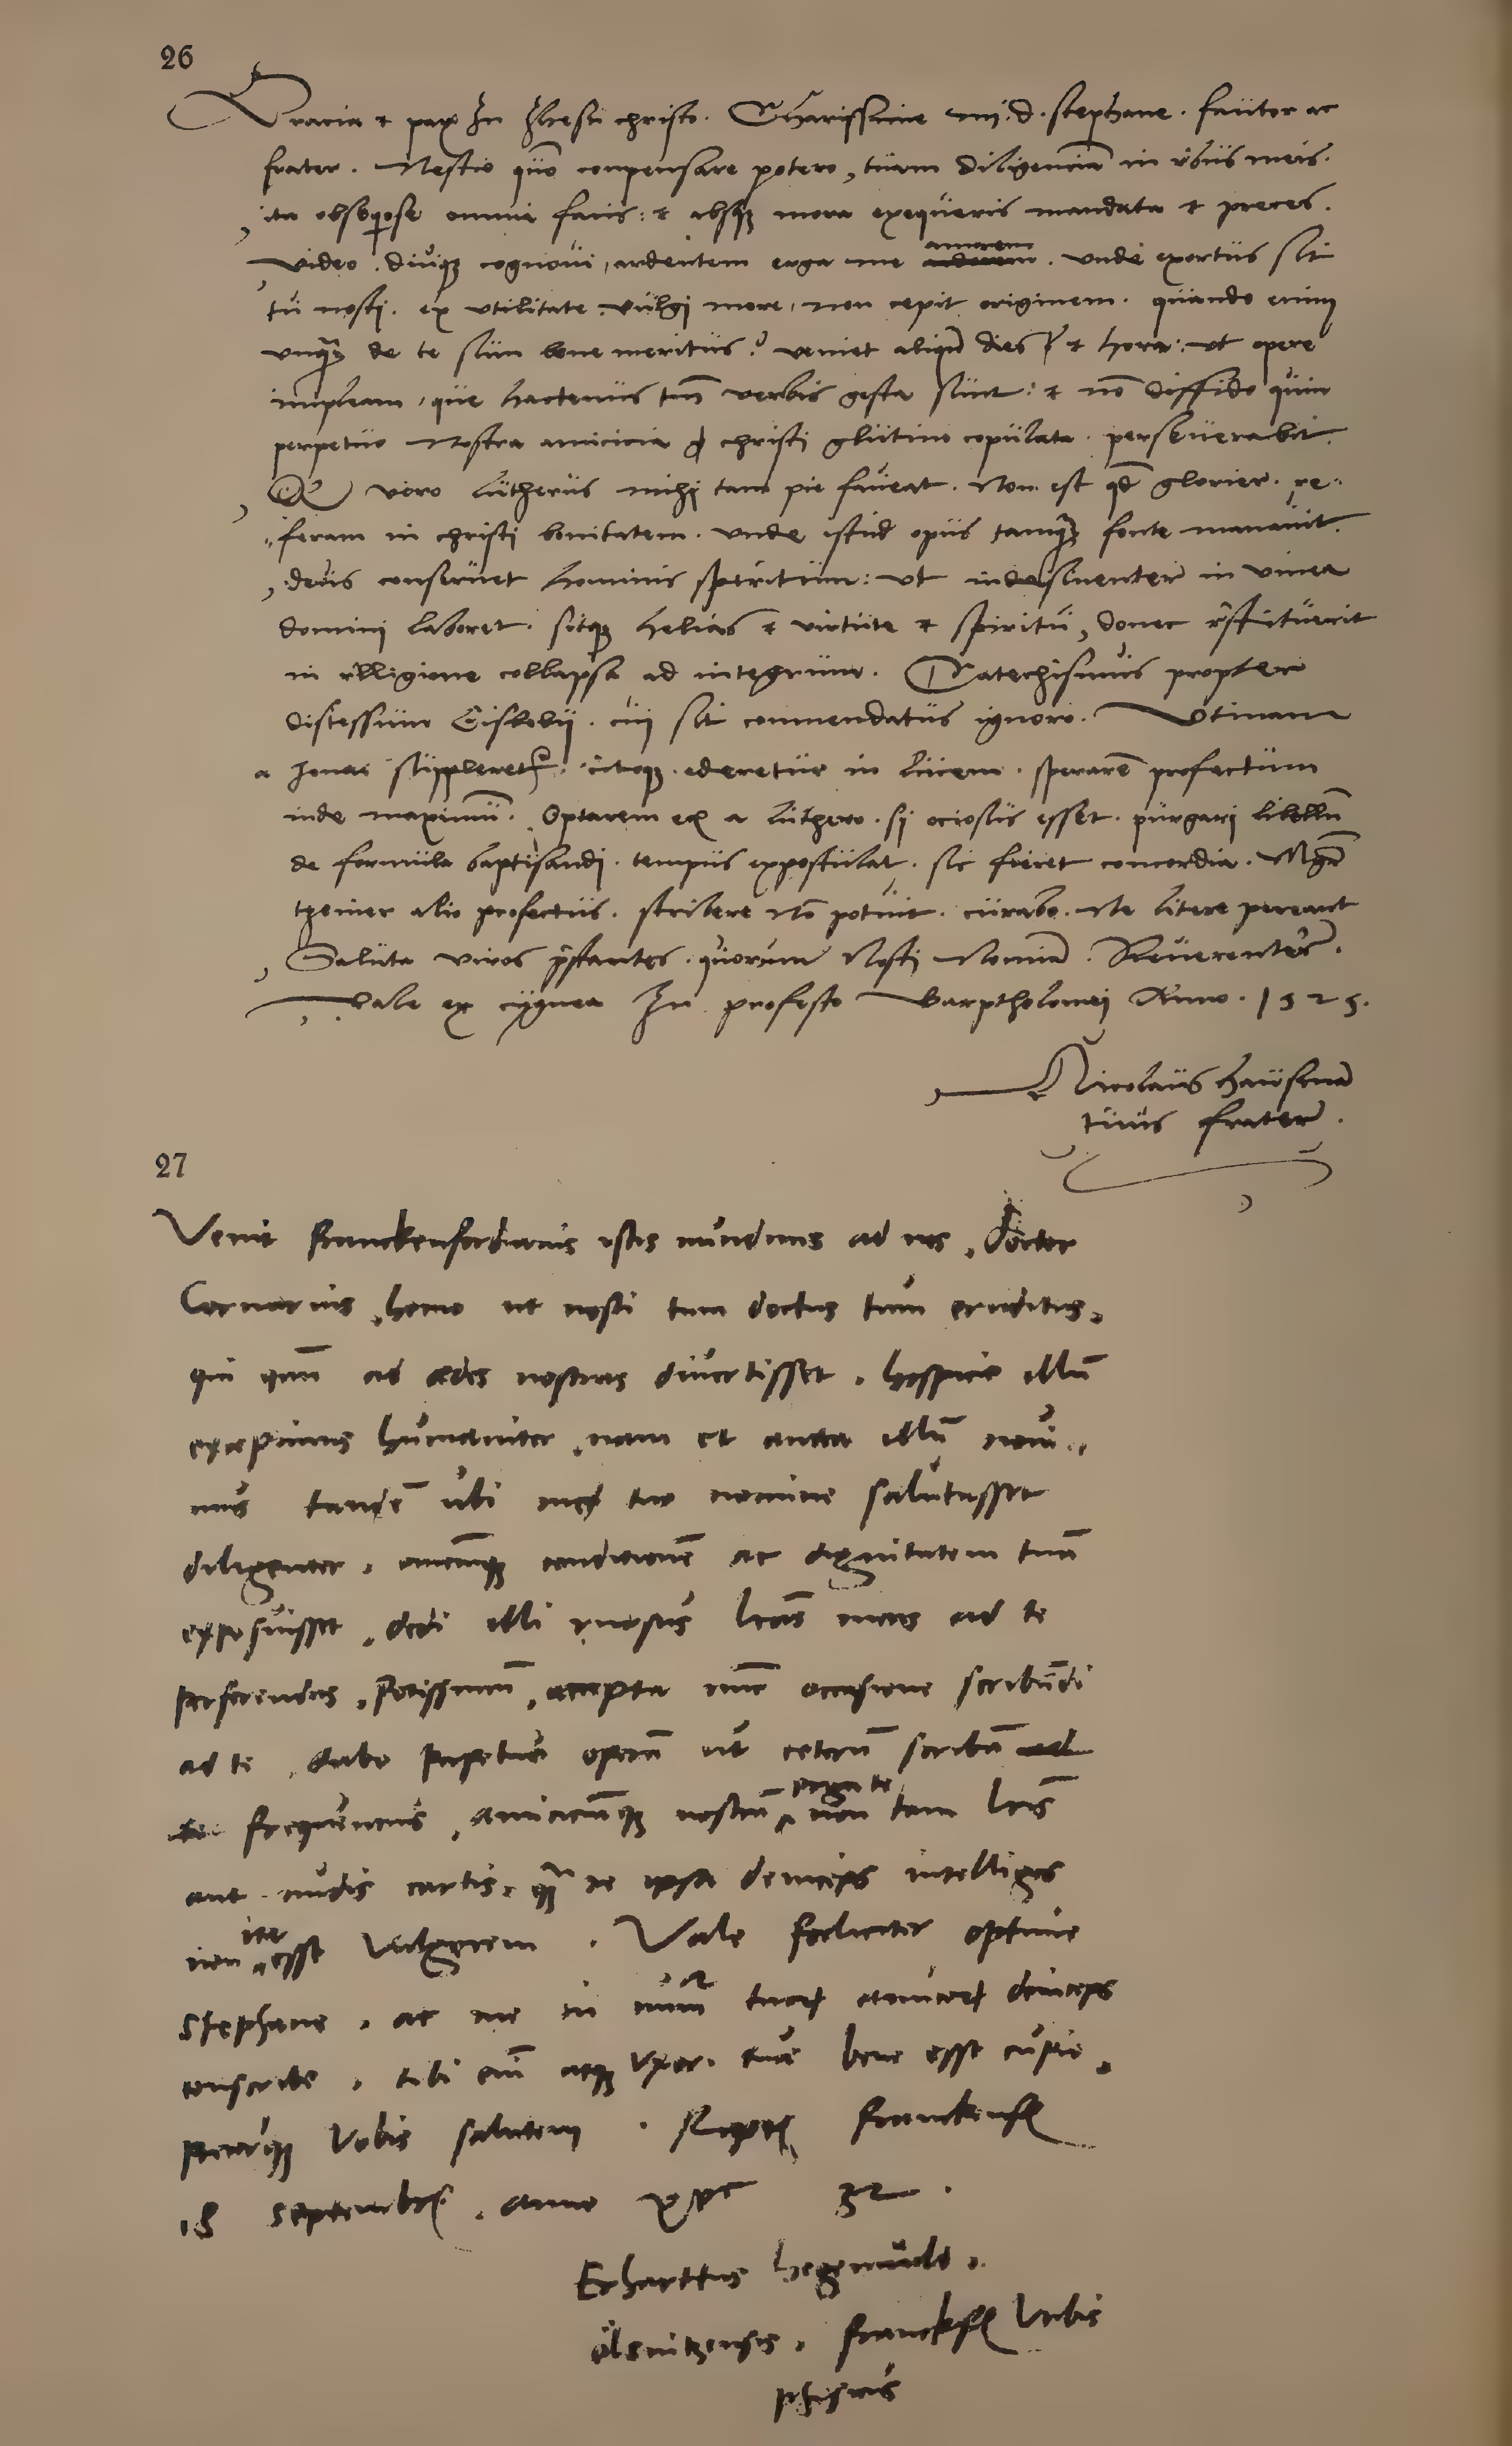 26
Gracia & pax In Jhesu christo. Charissime mi. d. stephane. fautor ac
frater. Nescio quō conpensare potero, tuam diligenciā in rēbus meis.
ita obseqiose omnia facis: & absq̨ mora exequeris mandata & preces.
video. diuq̨ cognoui, ardentem erga me amorem. unde exortus sit
tu nosti. ex utilitate. vulgi more, non cepit originem. quando enim
unq̄ de te sum bene meritus? veniet aliqn̄ dies & hora: ut opere
impleam, que hactenus tm̄ verbis gesta sunt: & nō diffido quin
perpetuo nostra amicicia christi glutino copulata. perseuerabit.
vero lutherus mihi tam pie faueat. Non est qd̄ glorier. re-
feram in christi bonitatem. unde istud opus tamq̄ fonte manauit.
deus conseruet hominis spiritum: ut indesinenter in vinea
domini laboret. sitq̨ helias & virtute & spiritu, donec rēstituerit
in relligione collapsa ad integrum. Catechismus propter
discessum Eislebij. cui sit commendatus ignoro. Utinam
a Jona suppleretur. citoq̨. ederetur in lucem. sperarē profectum
inde maximū. Optarem a luthero. si ociosus esset. purgari libellū
de formula baptisandi. tempus expostulat. sic fieret concordia. Mgr̄
tzeiner alio profectus. scribere nō potuit. curabo. Ne litere pereant
Saluta viros p̄stantes. quorum Nosti Nomina. Reuerenter.
Vale ex cygnea In profesto Barptholomei Anno. 1525.
Nicolaus hausman
tuus frater.
27
Venit franckenfordianus istis nundinis ad nos, doctor
Cornarius, homo ut nosti tum doctus tum eruditus,
qui quū ad ædes nostras diuertisset, hospicio illū
excepimus humaniter, nam et antea illū noui-
mus tandē ubi me tuo nomine salutasset
diligenter, omnemq̨ conditionē ac dignitatem tuā
exposuisset, dedi illi rursus lr̄as meas ad te
perferendas, potissimū, accepta nūc occasione scribūdi
ad te, dabo perpetuo operā ut ceterū scribā ad
te frequentius, amiciciāq̨ nostrā erga te non tam lr̄is
aut nudis cartis, q̄ re ipsa deinceps intelliges
non esse vulgarem. Vale fœliciter optime
Stephane, ac me in numerū tuorū amicorū deinceps
conscribe, tibi eni atq̨ uxori tuæ bene esse cupio,
precorq̨ vobis salutem. Raptī franckenf
18 septembr. anno 32.
Erharttus hegenwalt.
ölsnitzensis, franckf Urbis
phisicus